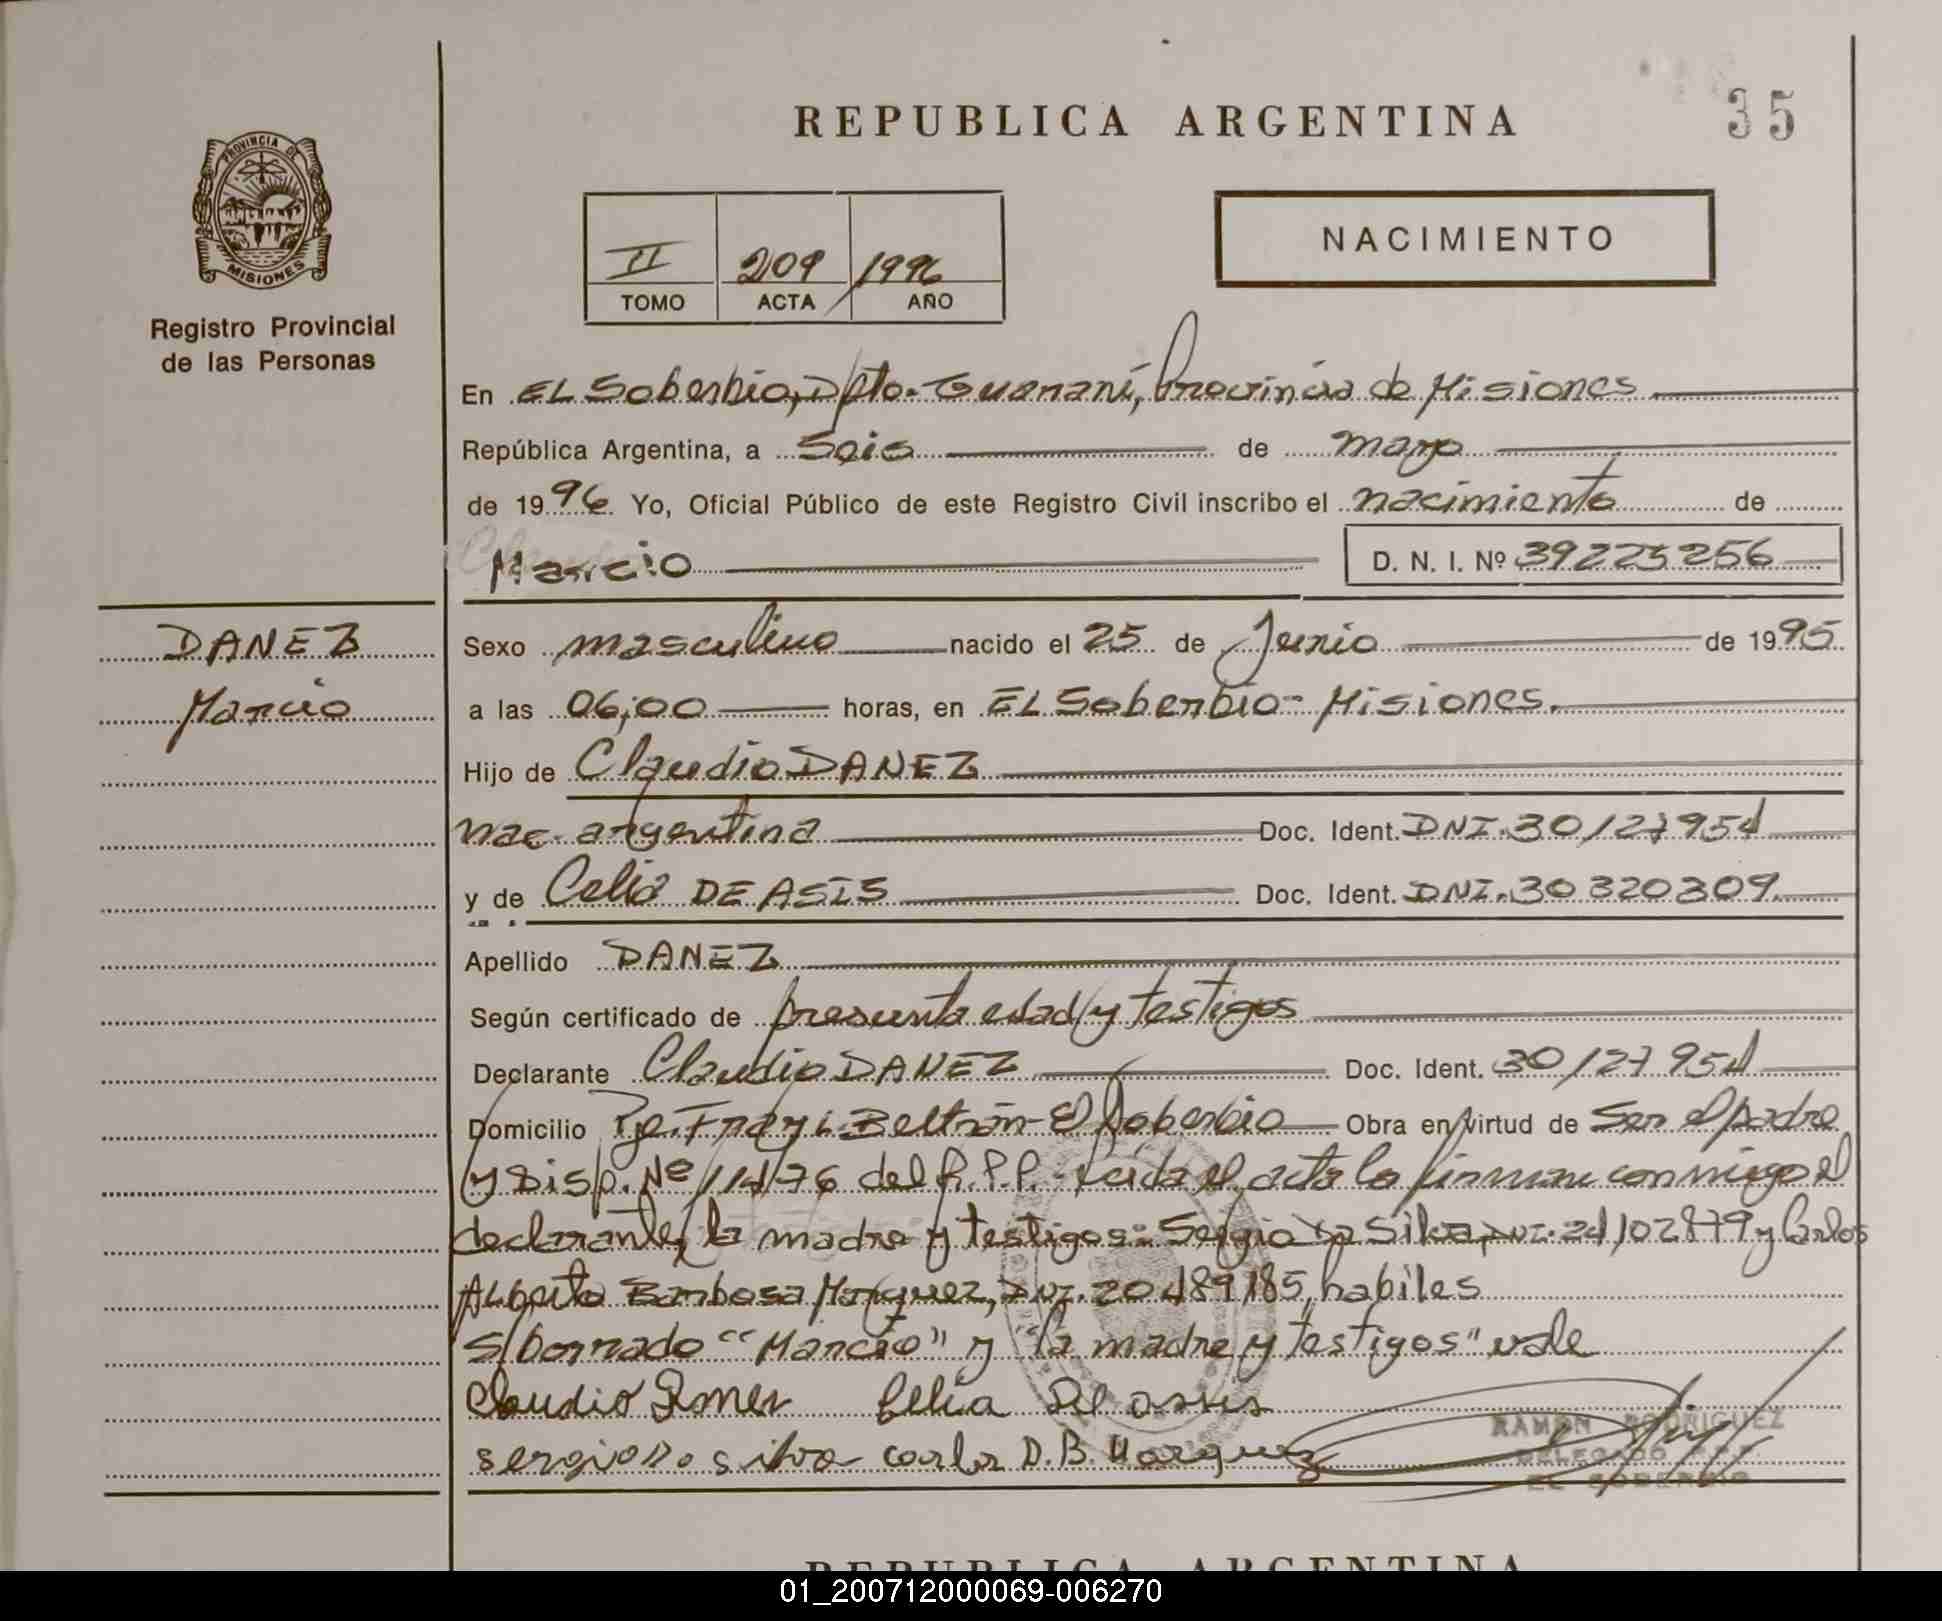 REPUBLICA ARGENTINA
35
PROVINCIA DE
MISIONES
Registro Provincial
de las Personas
II 209 1996
TOMO ACTA AÑO
NACIMIENTO
En EL Soberbio, Dpto. Guaraní, Provincia de Misiones
República Argentina, a Seis de mayo
de 1996 Yo, Oficial Público de este Registro Civil inscribo el nacimiento de
Marcio D. N. I. Nº 39225256
DANEZ
Marcio
Sexo masculino nacido el 25 de Junio de 1995
a las 06,00 horas, en EL Soberbio - Misiones.
Hijo de Claudio DANEZ
nac. argentina Doc. Ident. DNI. 30127954
y de Celia DE ASIS Doc. Ident. DNI. 30320309
Apellido DANEZ
Según certificado de presunta edad y testigos
Declarante Claudio DANEZ Doc. Ident. 30127954
Domicilio Pje. Fray L. Beltrán - El Soberbio Obra en virtud de Ser el padre
y Disp. Nº 114/76 del R.P.P. - Leida el acta la firman conmigo el
declarante, la madre y testigos: Sergio Da Silva, DNI. 24102879 y Carlos
Alberto Barbosa Marquez, DNI. 20489185, habiles
S/borrado "Marcio" y "la madre y testigos" vale
Claudio Danes Celia De asis
sergio Da silva carlo D. B. Marquez
RAMON RODRIGUEZ
DELEGADO R.P.P.
EL SOBERBIO
REPUBLICA ARGENTINA
01_200712000069-006270